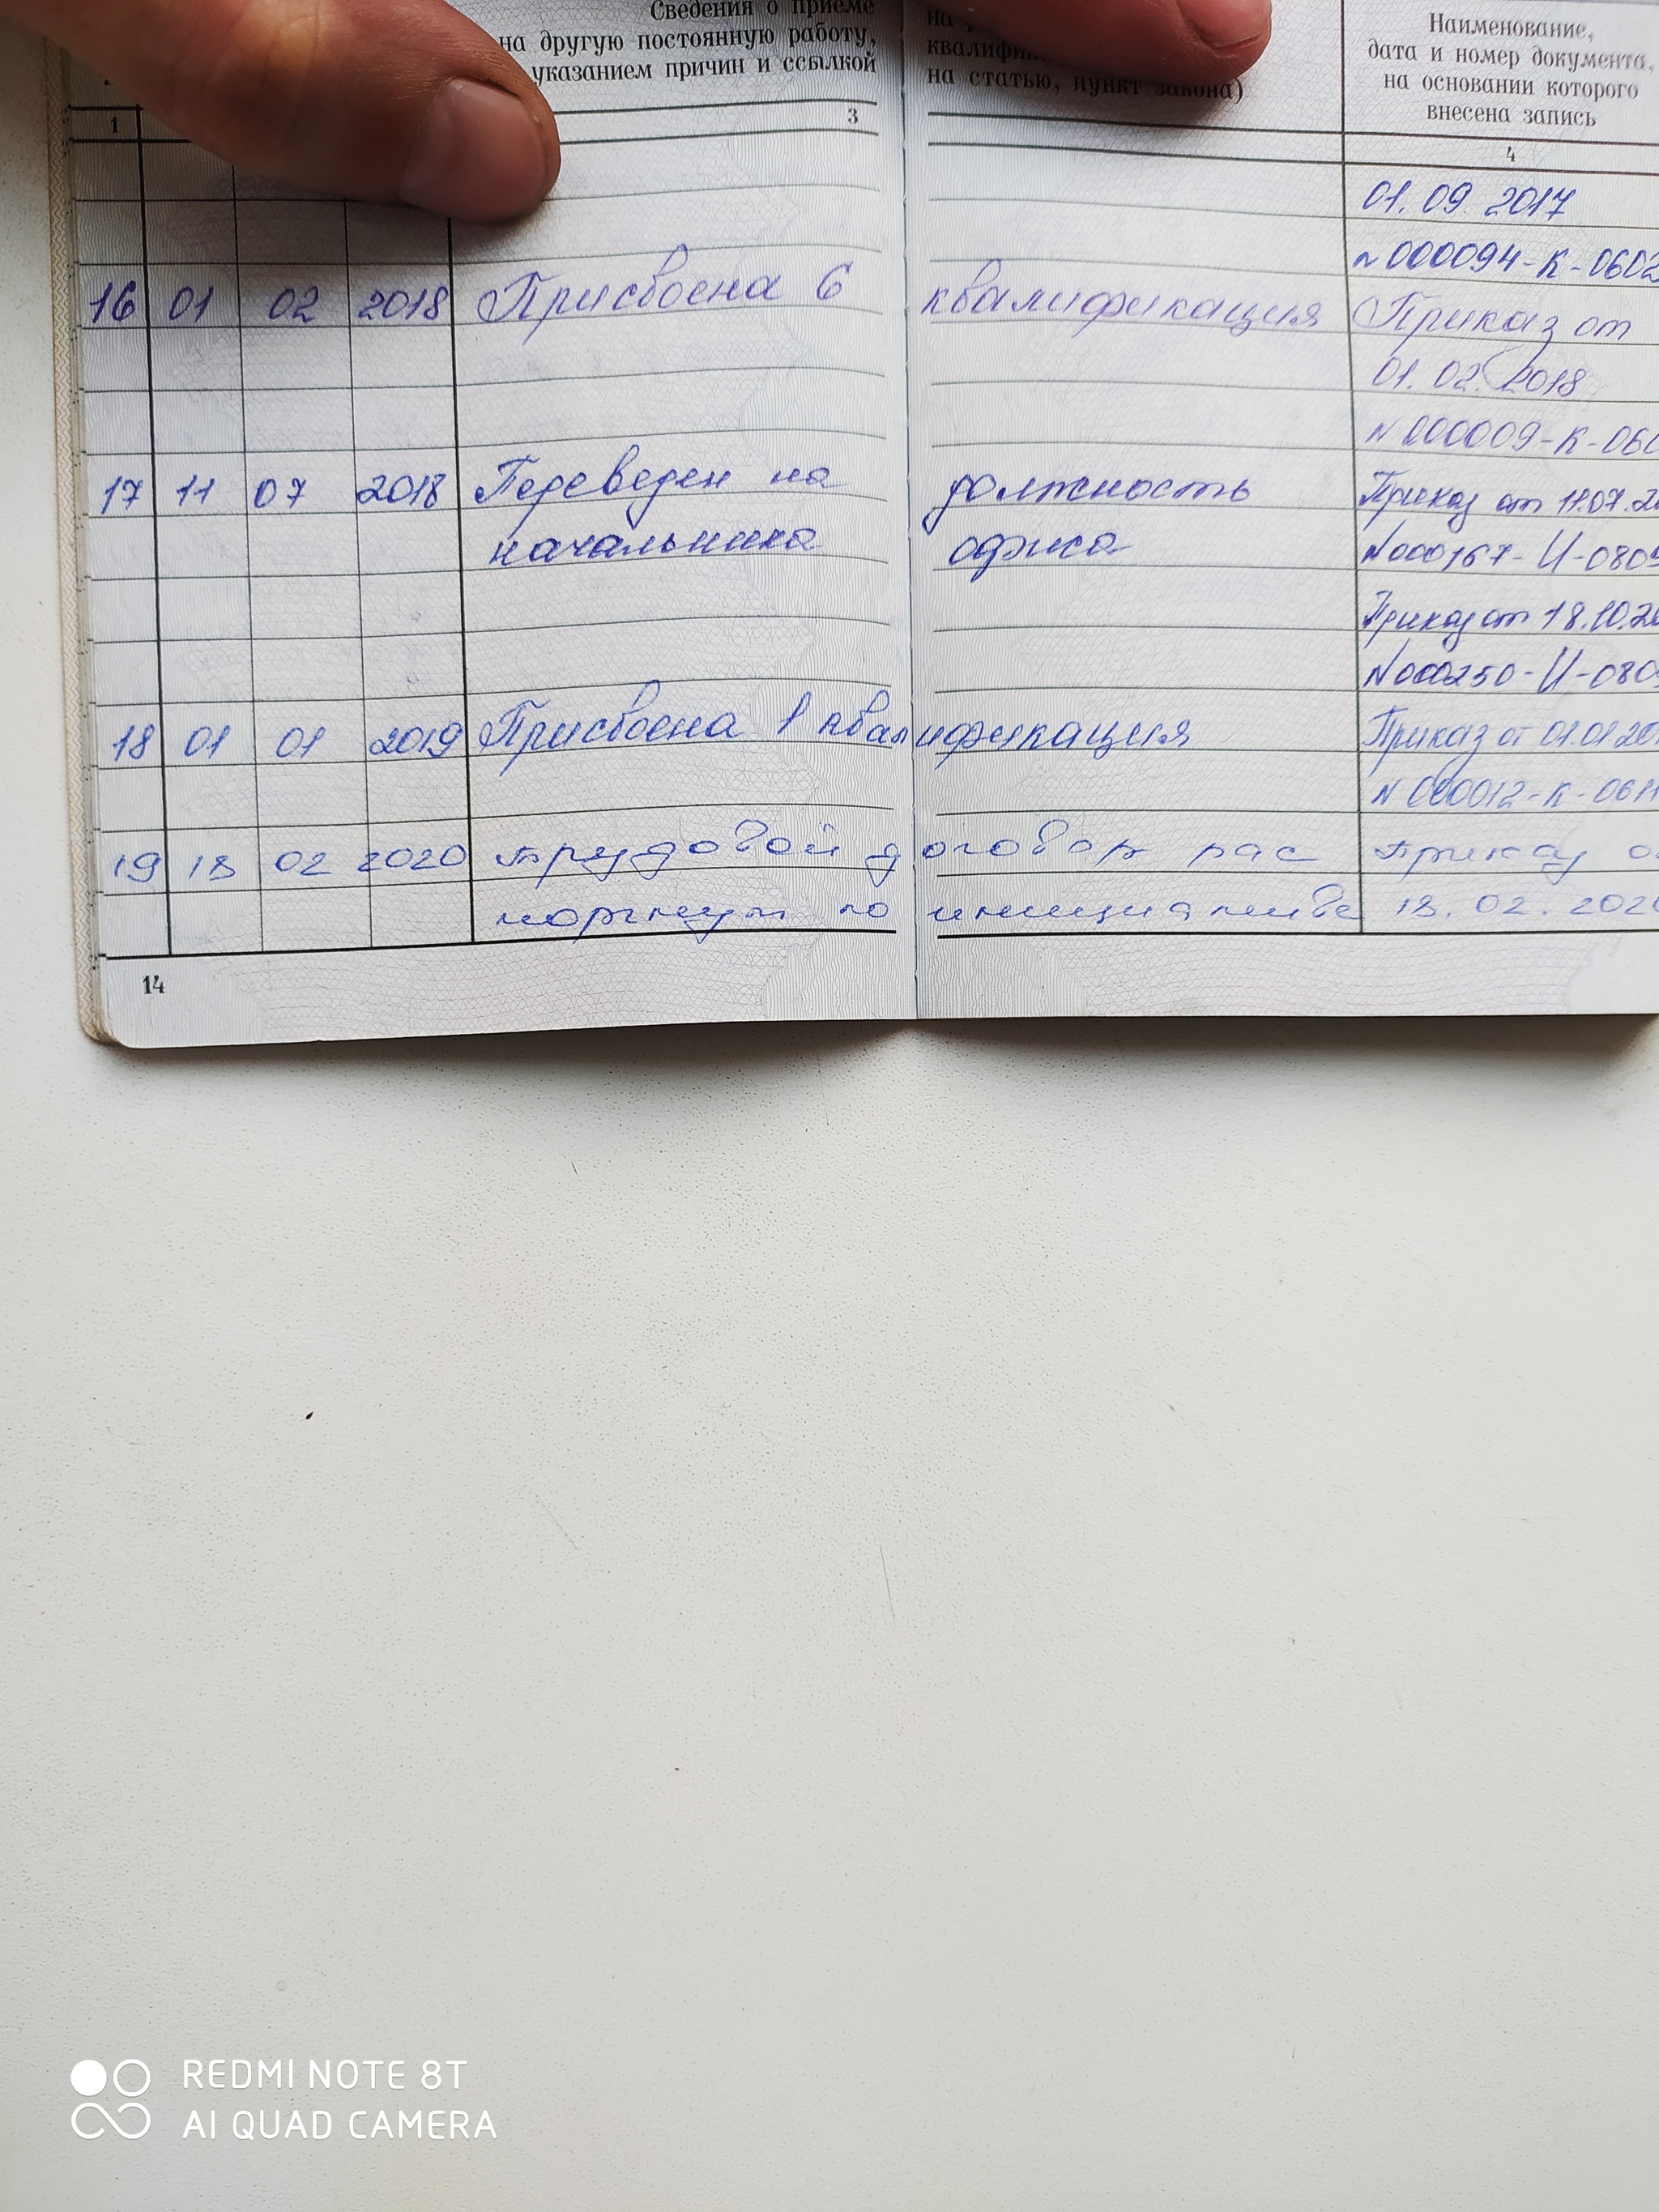 Сведения о приеме
на другую постоянную работу,
указанием причин и ссылкой
на
квалифи
на статью, пункт закона)
Наименование,
дата и номер документа,
на основании которого
внесена запись
1 3 4
01.09.2017
N000094-К-0602
16 01 02 2018 Присвоена 6 квалификация Приказ от
01.02.2018
N000009-К-060
17 11 07 2018 Переведен на должность Приказ от 11.07.2
начальника офиса N000167-И-080
Приказ от 18.10.2
N000250-И-080
18 01 01 2019 Присвоена 1 квалификация Приказ от 01.01.20
N000012-К-061
19 18 02 2020 трудовой договор рас приказ о
торгнут по инициативе 18.02.202
14
REDMI NOTE 8T
AI QUAD CAMERA